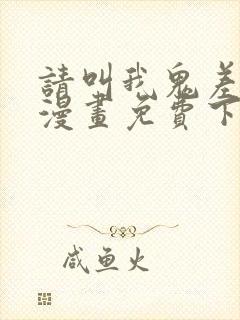 請叫我鬼差
漫畫免費下
咸鱼火